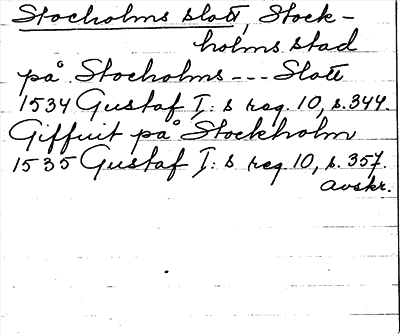 Stocholms slott, Stock-
holms stad
på Stocholms --- Slott
1534 Gustaf I:s reg. 10, s. 344.
Giffuit på Stockholm
1535 Gustaf I:s reg. 10, s. 357.
avskr.